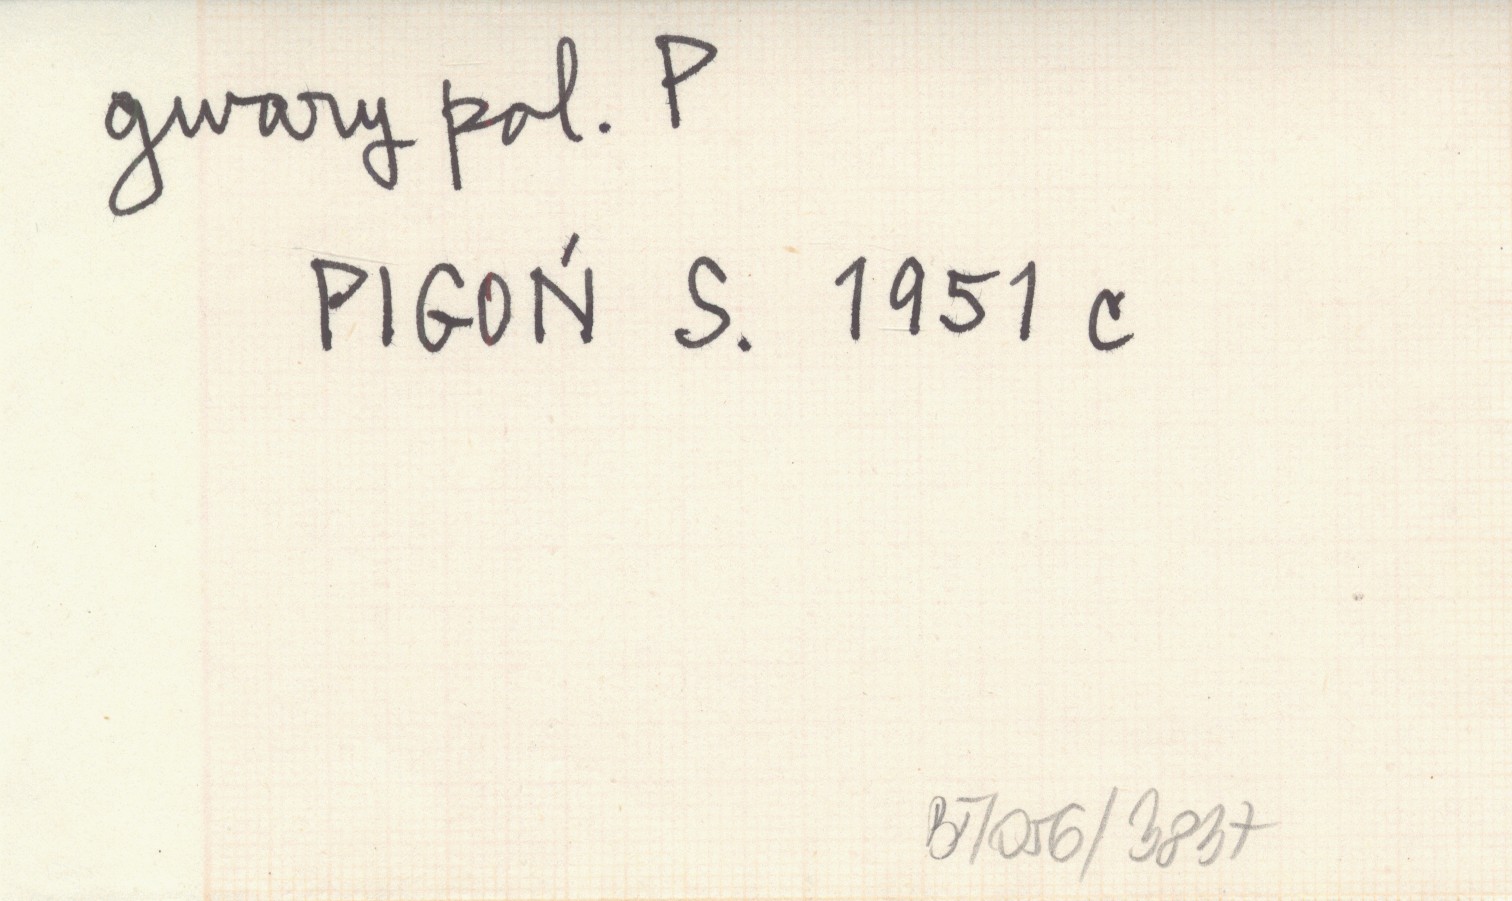 gwary pol. P
PIGOŃ S. 1951 c
BT/056/3837